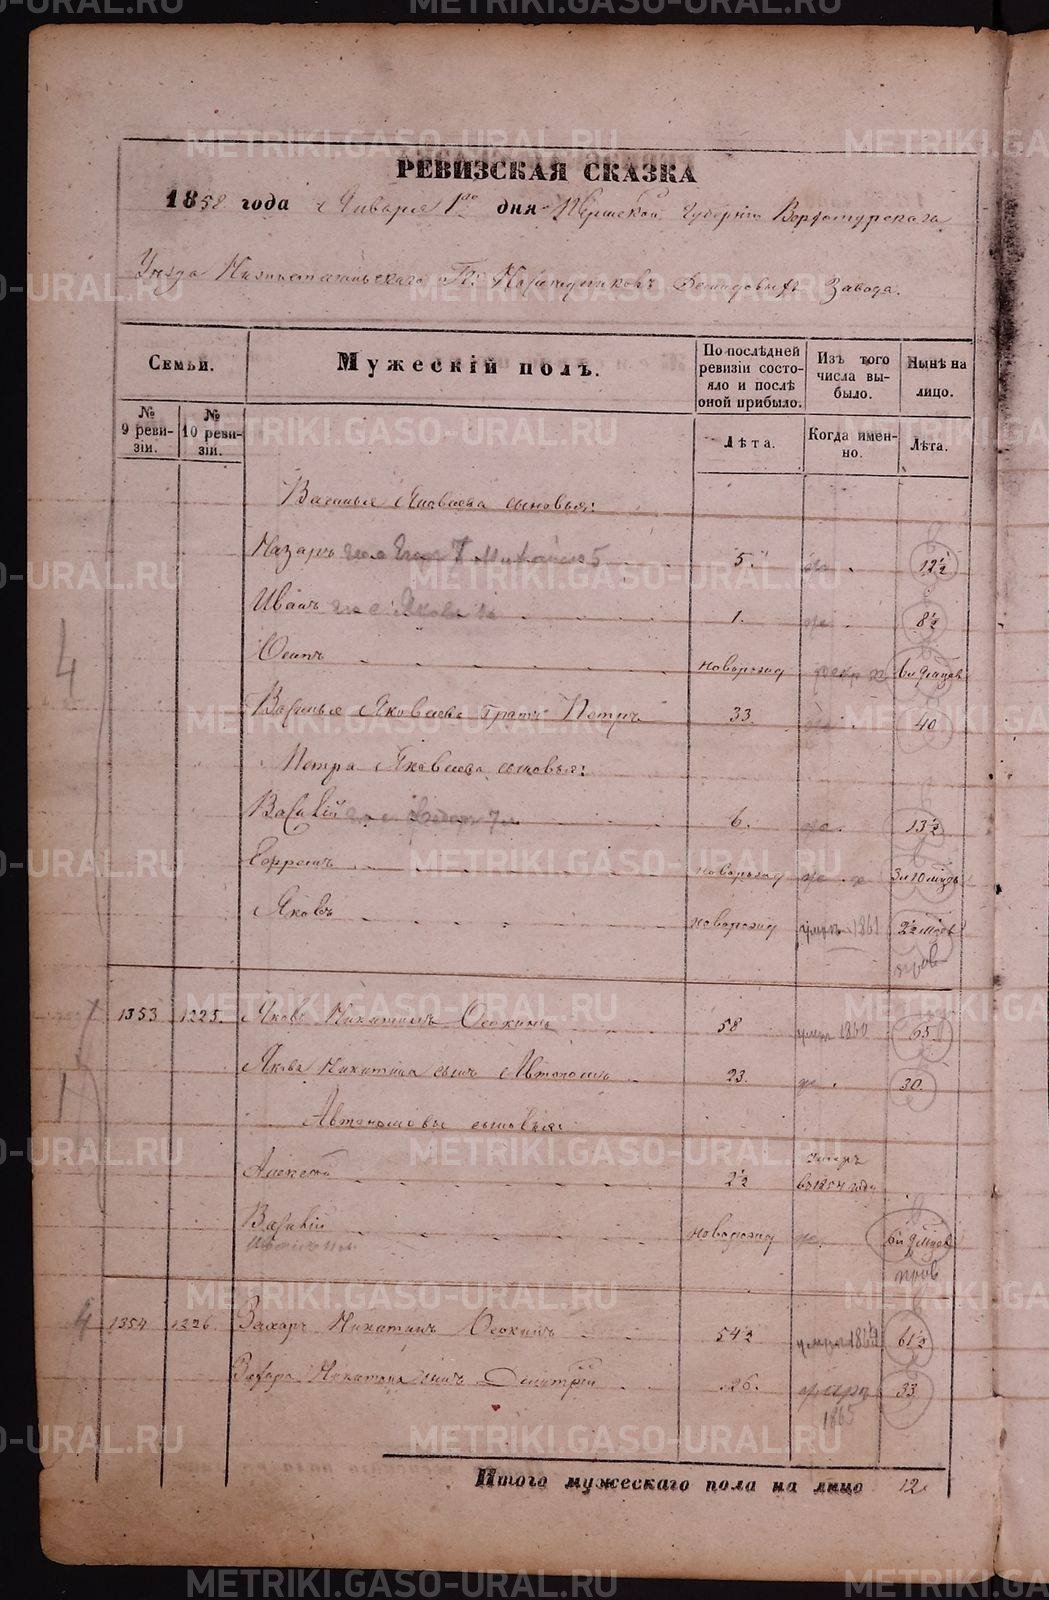 РЕВИЗСКАЯ СКАЗКА
1858 года Января 1го дня Пермской Губернiи Верхотурскаго
Уѣзда Нижнетагильскаго Гг. Наслѣдниковъ Демидовыхъ Завода.
Семьи.
Мужескiй полъ.
По послѣдней ревизiи состояло и послѣ оной прибыло.
Изъ того числа выбыло.
Нынѣ на лицо.
№ 9 ревизiи.
№ 10 ревизiи.
Лѣта.
Когда именно.
Лѣта.
Василья Яковлева сыновья:
Назаръ Егоръ 7 Михайло 5 5. 12½
Иванъ Яковъ 1. 8½
Осипъ новорожд 6 и 9 мѣцев
Василья Яковлева братъ Петръ 33. 40
Петра Яковлева сыновья:
Василiй Федоръ 7 6. 13½
Ефремъ новорожд 3 и 10 мѣцъ
Яковъ новорожд умеръ 1861 2½ мѣцев
1353 1225. Яковъ Никитинъ Осокинъ 58 умеръ 1860 65.
Якова Никитина сынъ Автономъ 23. 30.
Автономовы сыновья:
Алексѣй 2½ умеръ в 1854 году
Василiй новорожд 6 и 9 мѣцев
1354 1226 Захаръ Никитинъ Осокинъ 54½ умеръ 61½
Захара Никитина сынъ Дмитрiй 26. 1865 33
Итого мужескаго пола на лицо 12
METRIKI.GASO-URAL.RU